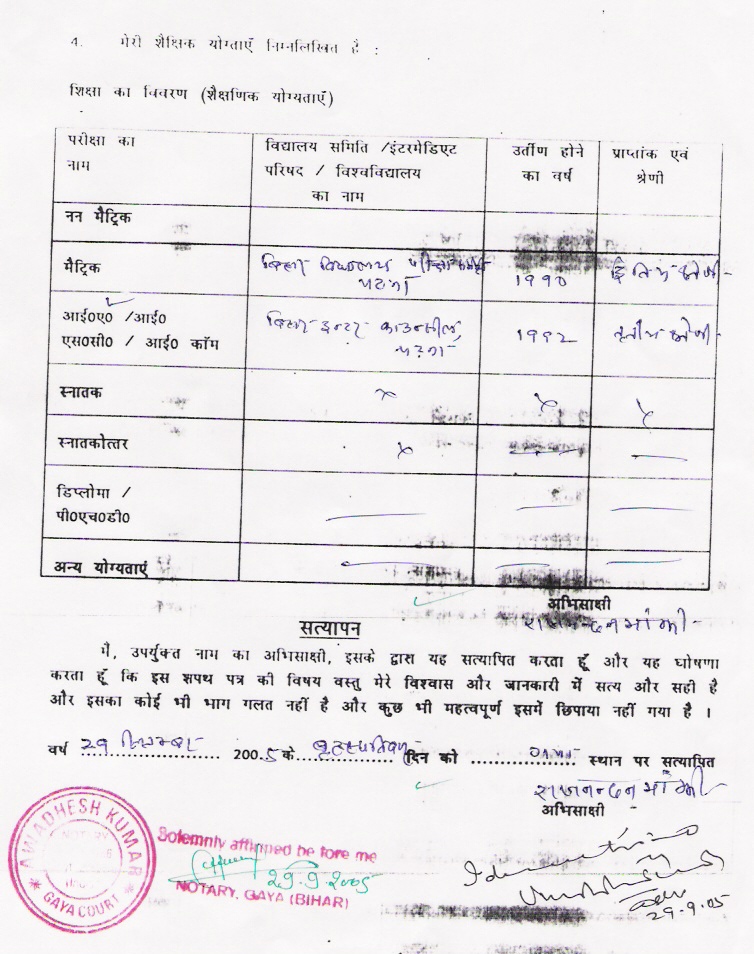 4. मेरी शैक्षिक योग्ताएँ निम्नलिखित है :
शिक्षा का विवरण (शैक्षणिक योग्यताएँ)
परीक्षा का नाम
विद्यालय समिति /इंटरमेडिएट परिषद / विश्वविद्यालय का नाम
उर्तीण होने का वर्ष
प्राप्तांक एवं श्रेणी
नन मैट्रिक
मैट्रिक बिहार विद्यालय परीक्षा पटना 1990 द्वितीय श्रेणी
आई०ए० /आई० एस०सी० / आई० कॉम बिहार इन्टर काउन्सील, पटना 1992 तृतीय श्रेणी
स्नातक x x x
स्नातकोत्तर x
डिप्लोमा / पी०एच०डी०
अन्य योग्यताएं
अभिसाक्षी
राजनन्दन मांझी
सत्यापन
मैं, उपर्युक्त नाम का अभिसाक्षी, इसके द्वारा यह सत्यापित करता हूँ और यह घोषणा
करता हूँ कि इस शपथ पत्र की विषय वस्तु मेरे विश्वास और जानकारी में सत्य और सही है
और इसका कोई भी भाग गलत नहीं है और कुछ भी महत्वपूर्ण इसमें छिपाया नहीं गया है ।
वर्ष 29 सितम्बर 2005 के (दिन को स्थान पर सत्यापित
राजनन्दन मांझी
अभिसाक्षी
AWADHESH KUMAR
NOTARY
GAYA COURT
Solemnly affirmed before me
29.9.2005
NOTARY, GAYA (BIHAR)
29.9.05